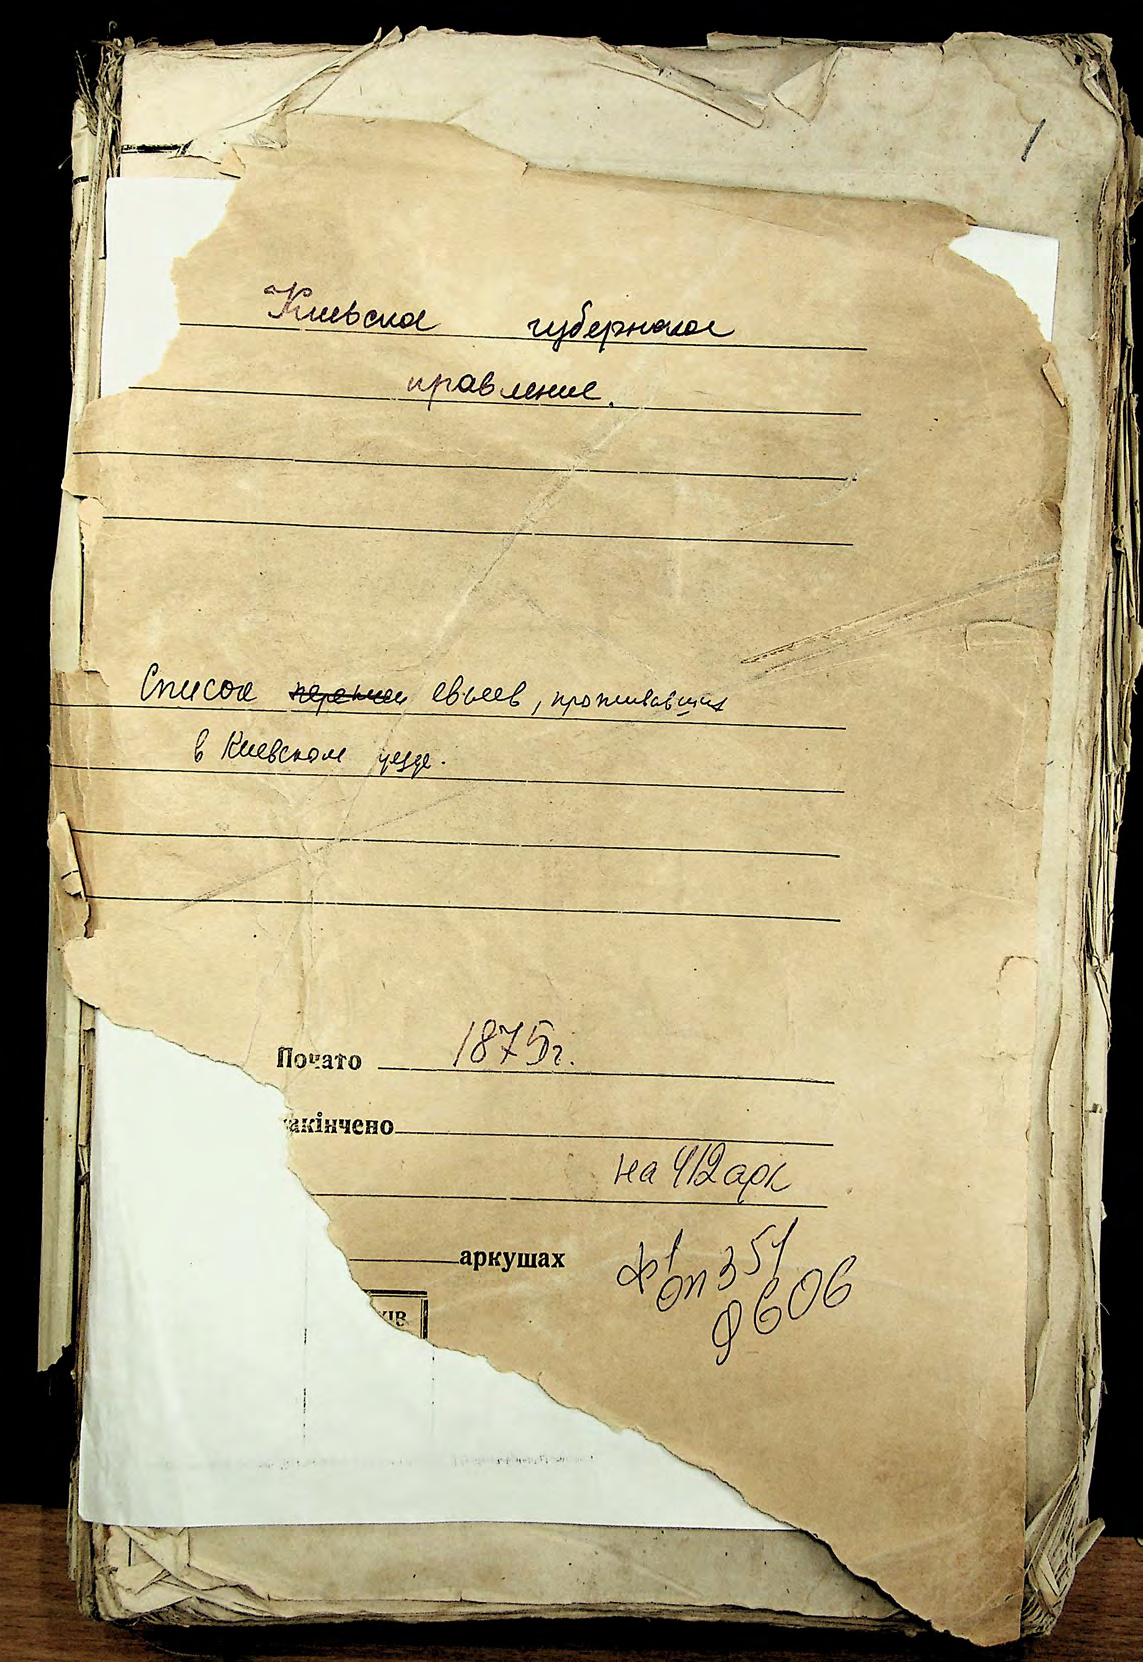 1
Киевское губернское
правление.
Список евреев, проживавших
в Киевском уезде.
Почато 1875г.
акінчено
на 412 арк
аркушах
ф1
оп 351
д 606
ків